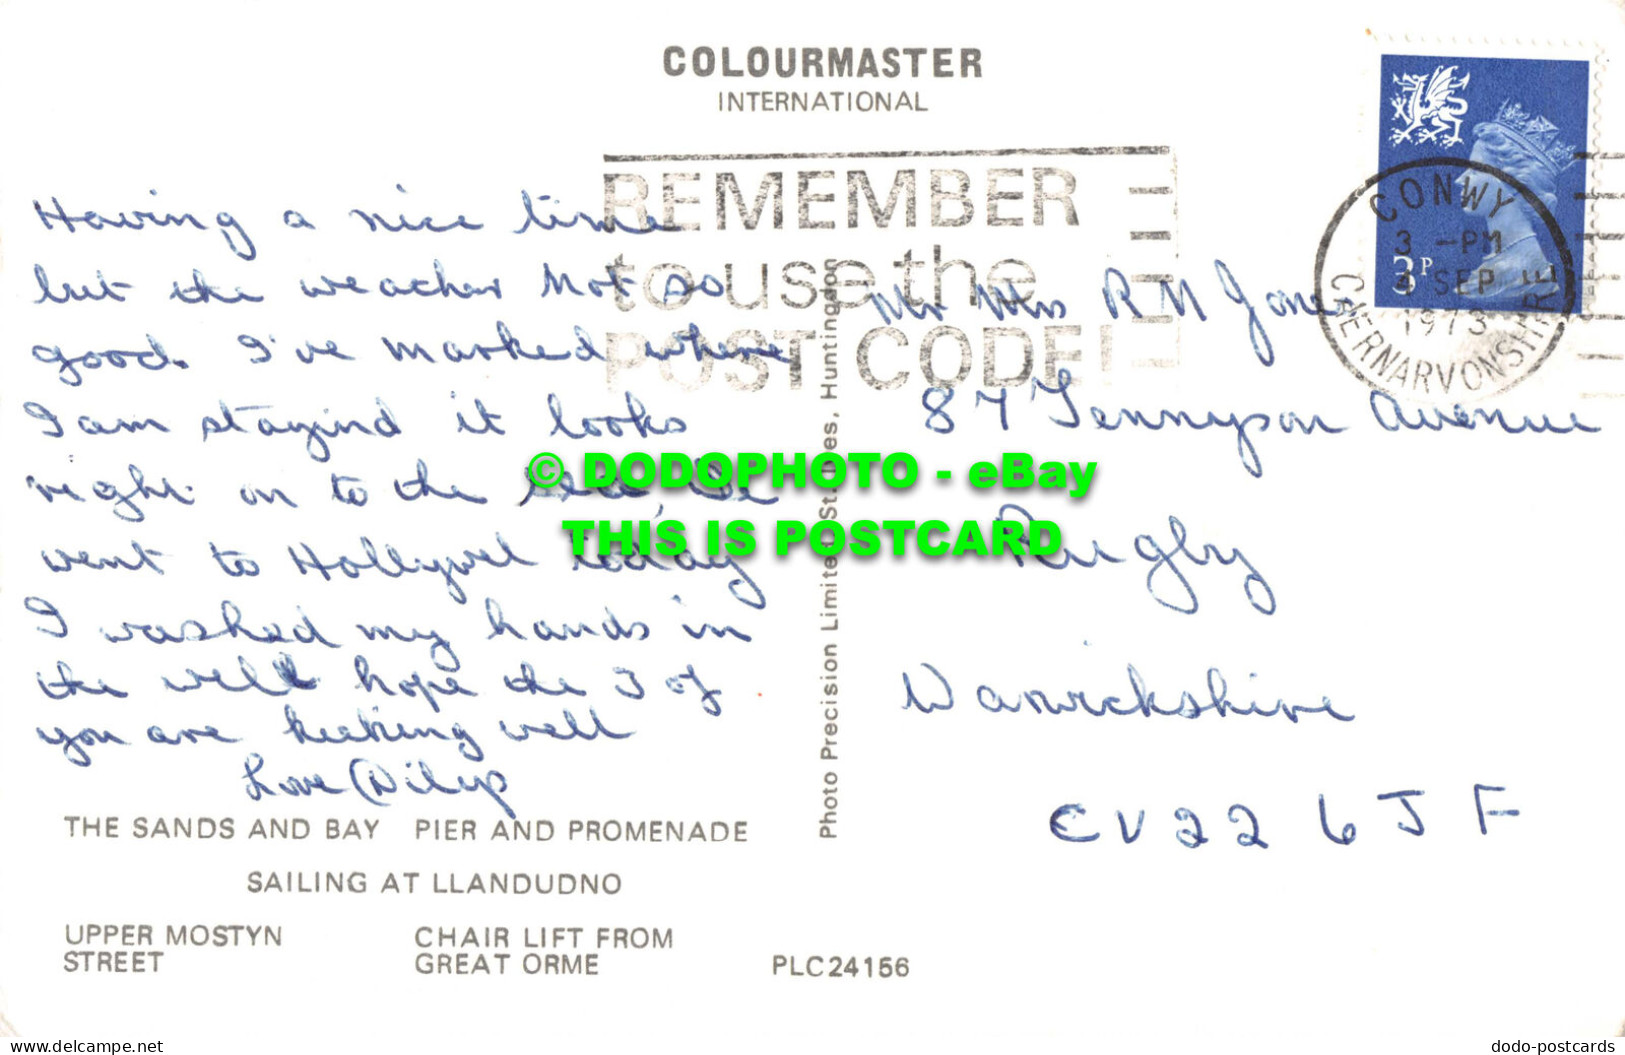 COLOURMASTER
INTERNATIONAL
REMEMBER
to use the
POST CODE!
CONWY
3 -PM
4 SEP
1973
CAERNARVONSHIRE
3P
Having a nice time
but the weather not so
good. I've marked where
I am stayind it looks
right on to the sea, We
went to Hollywel today
I washed my hands in
the well hope the 3 of
you are keeking well
Love Dilys
Mr Mrs R M Jone
87 Tennyson Avenue
Rugby
Warwickshire
CV22 6JF
© DODOPHOTO - eBay
THIS IS POSTCARD
Photo Precision Limited, St. Ives, Huntingdon
THE SANDS AND BAY PIER AND PROMENADE
SAILING AT LLANDUDNO
UPPER MOSTYN
STREET
CHAIR LIFT FROM
GREAT ORME
PLC24156
www.delcampe.net
dodo-postcards